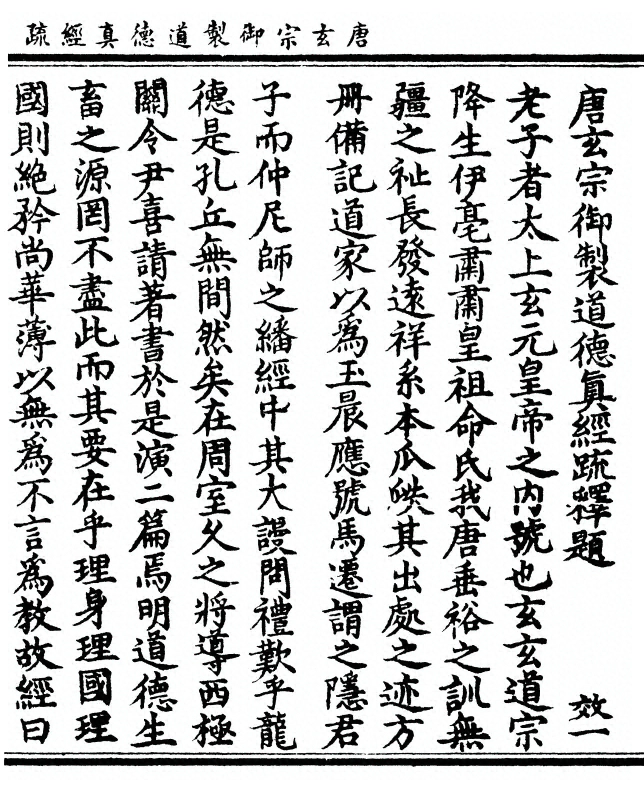 唐玄宗御製道德真經疏
唐玄宗御製道德真經疏釋題 效一
老子者太上玄元皇帝之內號也玄玄道宗
降生伊亳肅肅皇祖命氏我唐垂裕之訓無
疆之祉長發遠祥系本瓜瓞其出處之迹方
冊備記道家以為玉晨應號馬遷謂之隱君
子而仲尼師之繙經中其大謾問禮歎乎龍
德是孔丘無間然矣在周室久之將導西極
關令尹喜請著書於是演二篇焉明道德生
畜之源罔不盡此而其要在乎理身理國理
國則絕矜尚華薄以無為不言為教故經曰